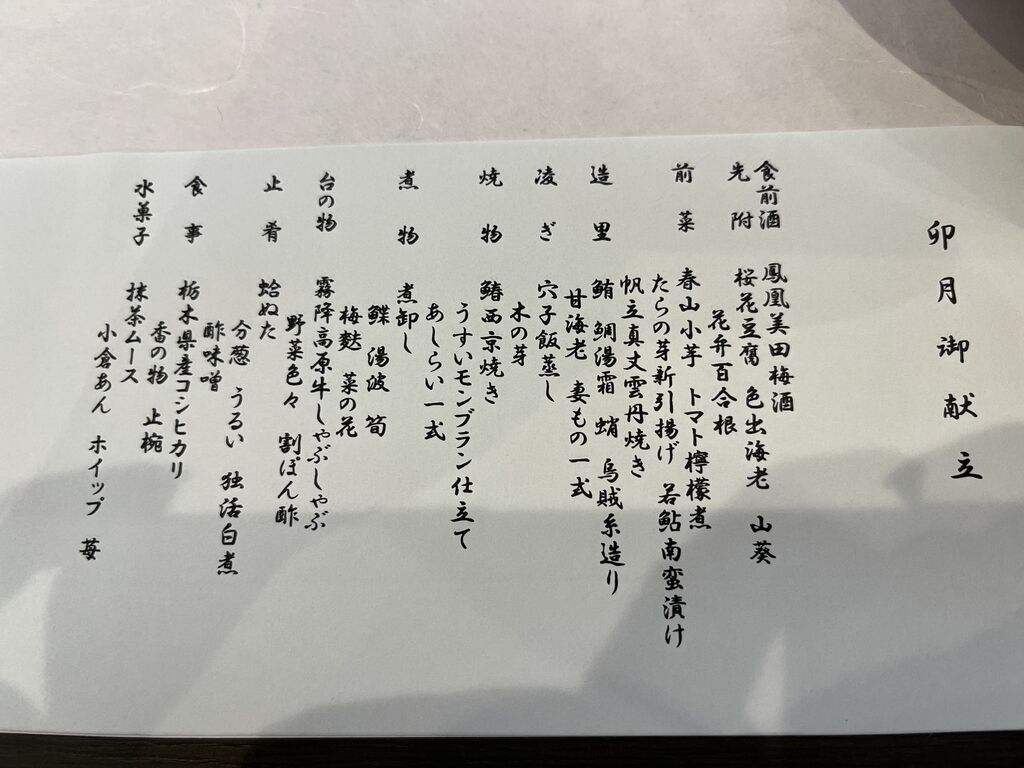 卯月御献立
食前酒 鳳凰美田梅酒
先附 桜花豆腐 色出海老 山葵
花弁百合根
前菜 春山小芋 トマト檸檬煮
たらの芽新引揚げ 若鮎南蛮漬け
帆立真丈雲丹焼き
造里 鮪 鯛湯霜 蛸 烏賊糸造り
甘海老 妻もの一式
凌ぎ 穴子飯蒸し
木の芽
焼物 鰆西京焼き
うすいモンブラン仕立て
あしらい一式
煮物 煮卸し
鰈 湯波 筍
梅麩 菜の花
台の物 霧降高原牛しゃぶしゃぶ
野菜色々 割ぽん酢
止肴 蛤ぬた
分葱 うるい 独活白煮
酢味噌
食事 栃木県産コシヒカリ
香の物 止椀
水菓子 抹茶ムース
小倉あん ホイップ 苺